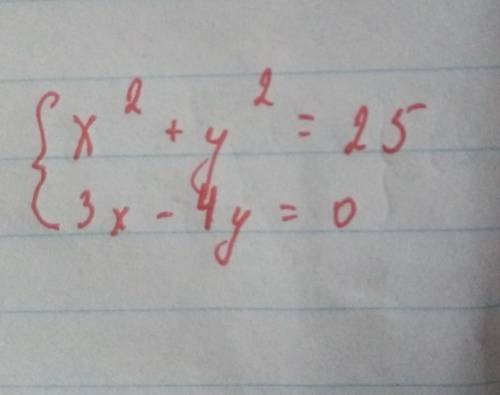 x² + y² = 25
3x - 4y = 0